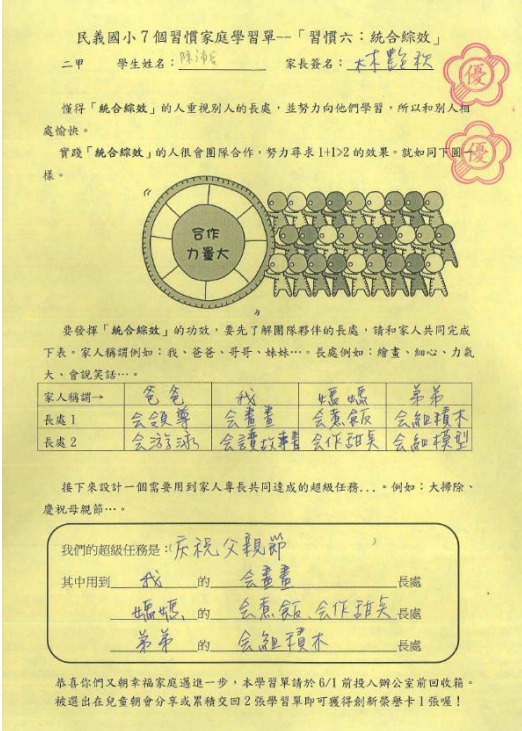 民義國小7個習慣家庭學習單--「習慣六：統合綜效」
二甲 學生姓名： 家長簽名：林艷秋
優
懂得「統合綜效」的人重視別人的長處，並努力向他們學習，所以和別人相
處愉快。
優
實踐「統合綜效」的人很會團隊合作，努力尋求1+1>2的效果。就如同下圖一
樣。
合作
力量大
要發揮「統合綜效」的功效，要先了解團隊夥伴的長處，請和家人共同完成
下表。家人稱謂例如：我、爸爸、哥哥、妹妹…。長處例如：繪畫、細心、力氣
大、會說笑話…。
家人稱謂→ 爸爸 我 媽媽 弟弟
長處1 会領導 会畫畫 会煮飯 会組積木
長處2 会游泳 会讀故事書 会作甜矣 会組模型
接下來設計一個需要用到家人專長共同達成的超級任務...。例如：大掃除、
慶祝母親節…。
我們的超級任務是：(庆祝父親節 )
其中用到 我 的 会畫畫 長處
媽媽 的 会煮飯、会作甜矣 長處
弟弟 的 会組積木 長處
恭喜你們又朝幸福家庭邁進一步，本學習單請於6/1前投入辦公室前回收箱。
被選出在兒童朝會分享或累積交回2張學習單即可獲得創新榮譽卡1張喔！